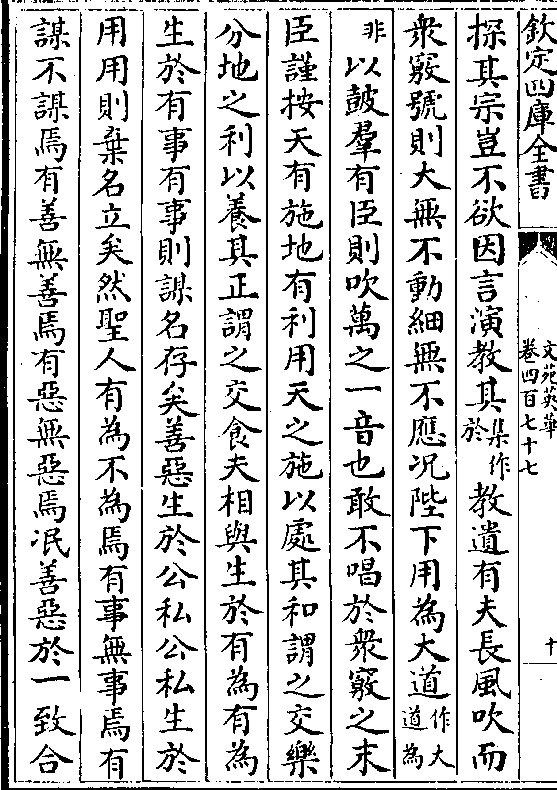 欽定四庫全書
文苑英華
卷四百七十七
十
探其宗豈不欲因言演教其集作於教遺有夫長風吹而
衆竅號則大無不動細無不應况陛下用為大道作大道為
非以鼓羣有臣則吹萬之一音也敢不唱於衆竅之末
臣謹按天有施地有利用天之施以處其和謂之交樂
分地之利以養其正謂之交食夫相與生於有為有為
生於有事有事則謀名存矣善惡生於公私公私生於
用用則棄名立矣然聖人有為不為焉有事無事焉有
謀不謀焉有善無善焉有惡無惡焉泯善惡於一致合